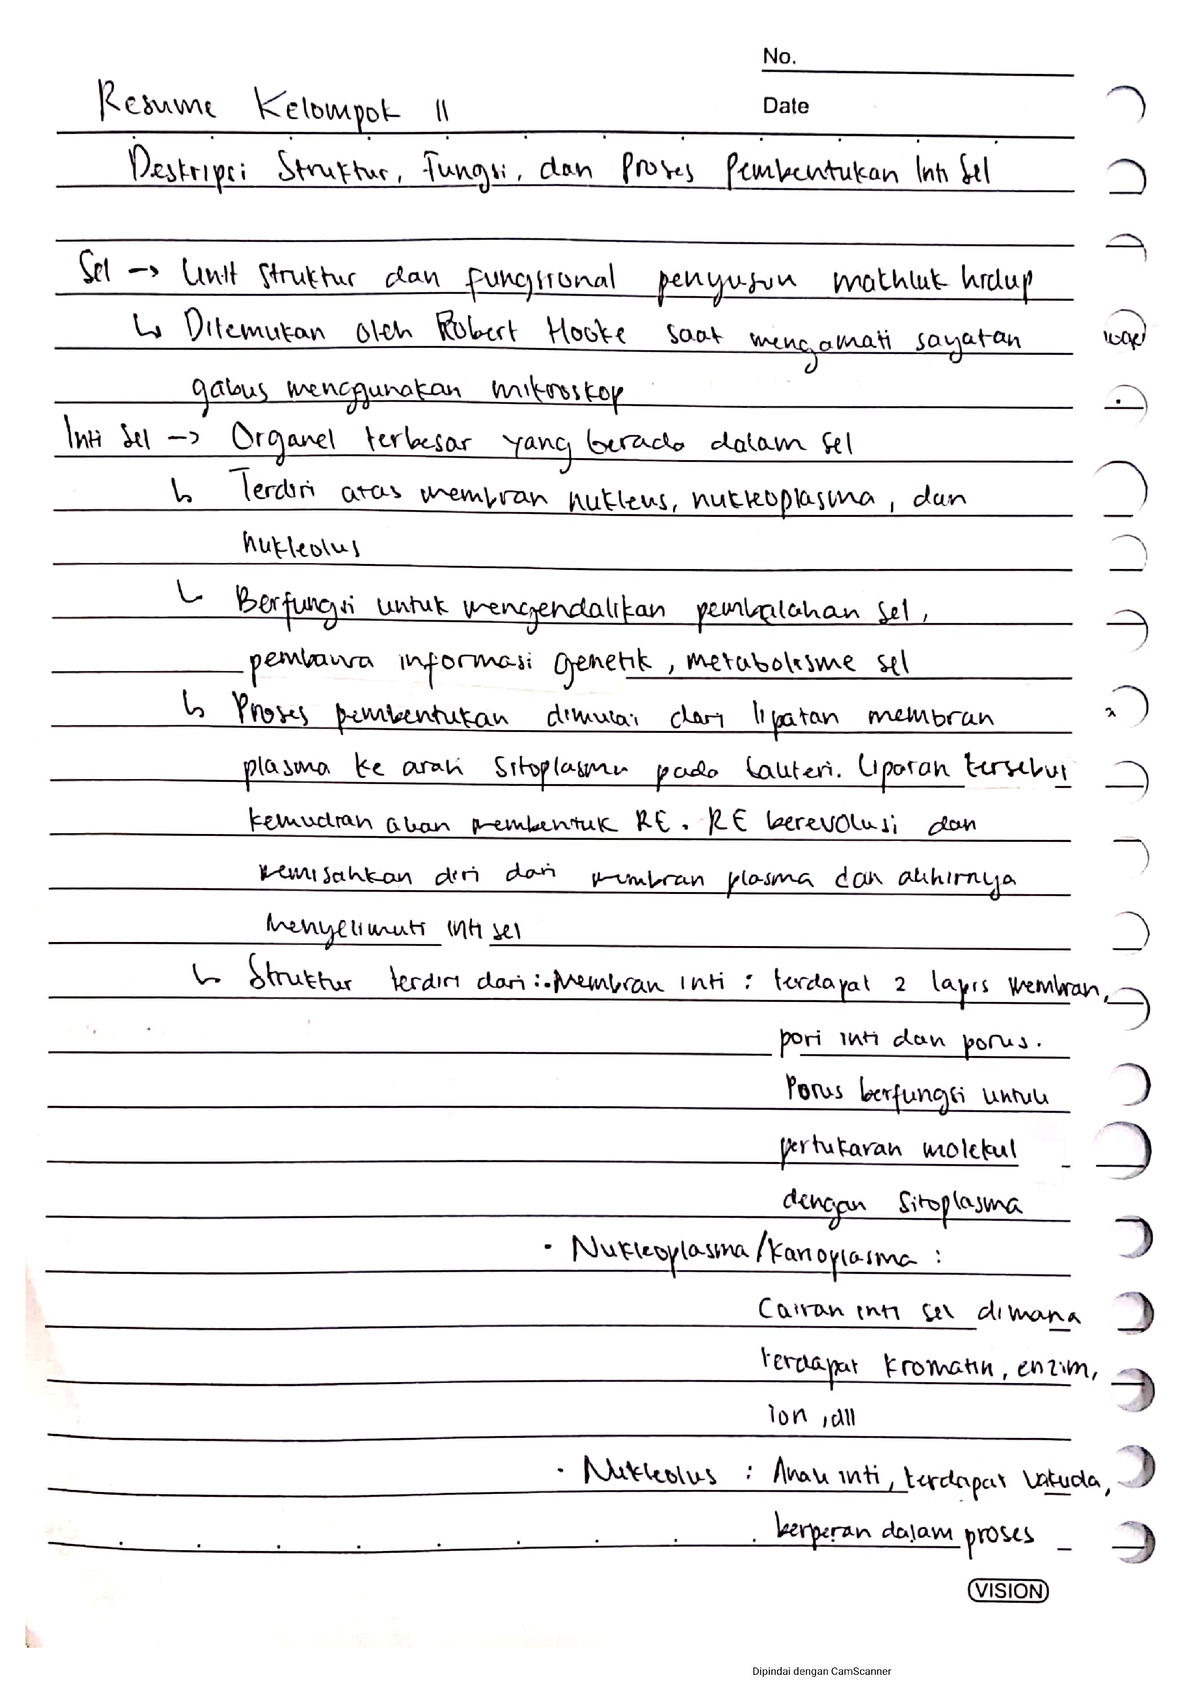 No.
Resume Kelompok 11
Date
Deskripsi Struktur, Fungsi, dan Proses Pembentukan Inti Sel
Sel -> Unit struktur dan fungsional penyusun makhluk hidup
↳ Ditemukan oleh Robert Hooke saat mengamati sayatan
gabus menggunakan mikroskop
Inti Sel -> Organel terbesar yang berada dalam sel
↳ Terdiri atas membran nukleus, nukleoplasma, dan
nukleolus
↳ Berfungsi untuk mengendalikan pembelahan sel,
pembawa informasi genetik, metabolisme sel
↳ Proses pembentukan dimulai dari lipatan membran
plasma ke arah sitoplasma pada bakteri. Lipatan tersebut
kemudian akan membentuk RE. RE berevolusi dan
memisahkan diri dari membran plasma dan akhirnya
menyelimuti inti sel
↳ Struktur terdiri dari : • Membran inti : terdapat 2 lapis membran,
pori inti dan porus.
Porus berfungsi untuk
pertukaran molekul
dengan sitoplasma
• Nukleoplasma/Karioplasma :
Cairan inti sel dimana
terdapat kromatin, enzim,
ion, dll
• Nukleolus : Anak inti, terdapat
berperan dalam proses
VISION
Dipindai dengan CamScanner